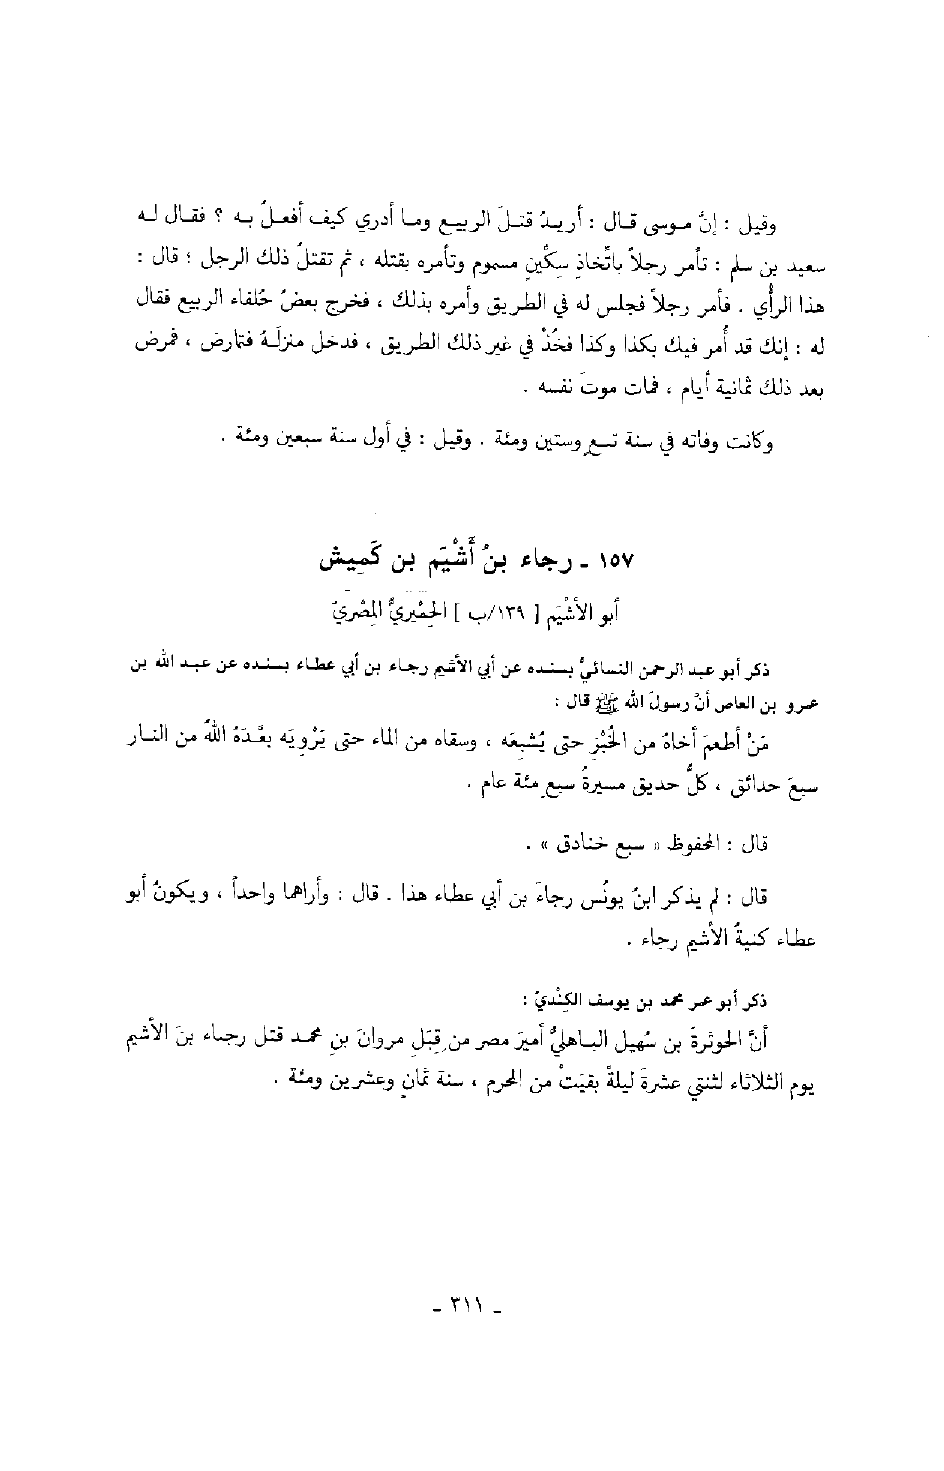 وقيل : إنَّ موسى قال : أريدُ قتلَ الربيع وما أدري كيف أفعلُ به ؟ فقال له
سعيد بن سلم : تأمر رجلاً باتِّخاذِ سِكِّينٍ مسموم وتأمره بقتله ، ثم تقتلُ ذلك الرجل ؛ قال :
هذا الرأي . فأمر رجلاً فجلس له في الطريق وأمره بذلك ، فخرج بعضُ خلفاء الربيع فقال
له : إنك قد أُمر فيك بكذا وكذا فخُذْ في غير ذلك الطريق ، فدخل منزلَهُ فتمارض ، فمرض
بعد ذلك ثمانية أيام ، فمات موتَ نفسه .
وكانت وفاته في سنة تسع وستين ومئة . وقيل : في أول سنة سبعين ومئة .
١٥٧ ـ رجاء بنُ أَشْيَم بن كَميش
أبو الأشْيَم [ ١٣٩/ب ] الحِمْيَريُّ المِصْريّ
ذكر أبو عبد الرحمن النسائيُّ بسنده عن أبي الأشيم رجاء بن أبي عطاء بسنده عن عبد الله بن
عمرو بن العاص أنَّ رسولَ الله ﷺ قال :
مَنْ أطعمَ أخاهُ من الخُبْزِ حتى يُشبِعَه ، وسقاه من الماء حتى يَرْوِيَه بعَّدَهُ اللهُ من النار
سبعَ حدائق ، كلُّ حديق مسيرةُ سبع مئة عام .
قال : المحفوظ « سبع خنادق » .
قال : لم يذكر ابنُ يونُس رجاءَ بن أبي عطاء هذا . قال : وأراهما واحداً ، ويكونُ أبو
عطاء كنيةُ الأشيم رجاء .
ذكر أبو عمر محمد بن يوسف الكِنْديّ :
أنَّ الحوثرةَ بن سُهيل الباهليُّ أميرَ مصر من قِبَلِ مروانَ بنِ محمد قتل رجاء بنَ الأشيم
يوم الثلاثاء لثنتي عشرةَ ليلةً بقيَتْ من المحرم ، سنة ثمانٍ وعشرين ومئة .
ـ ٣١١ ـ